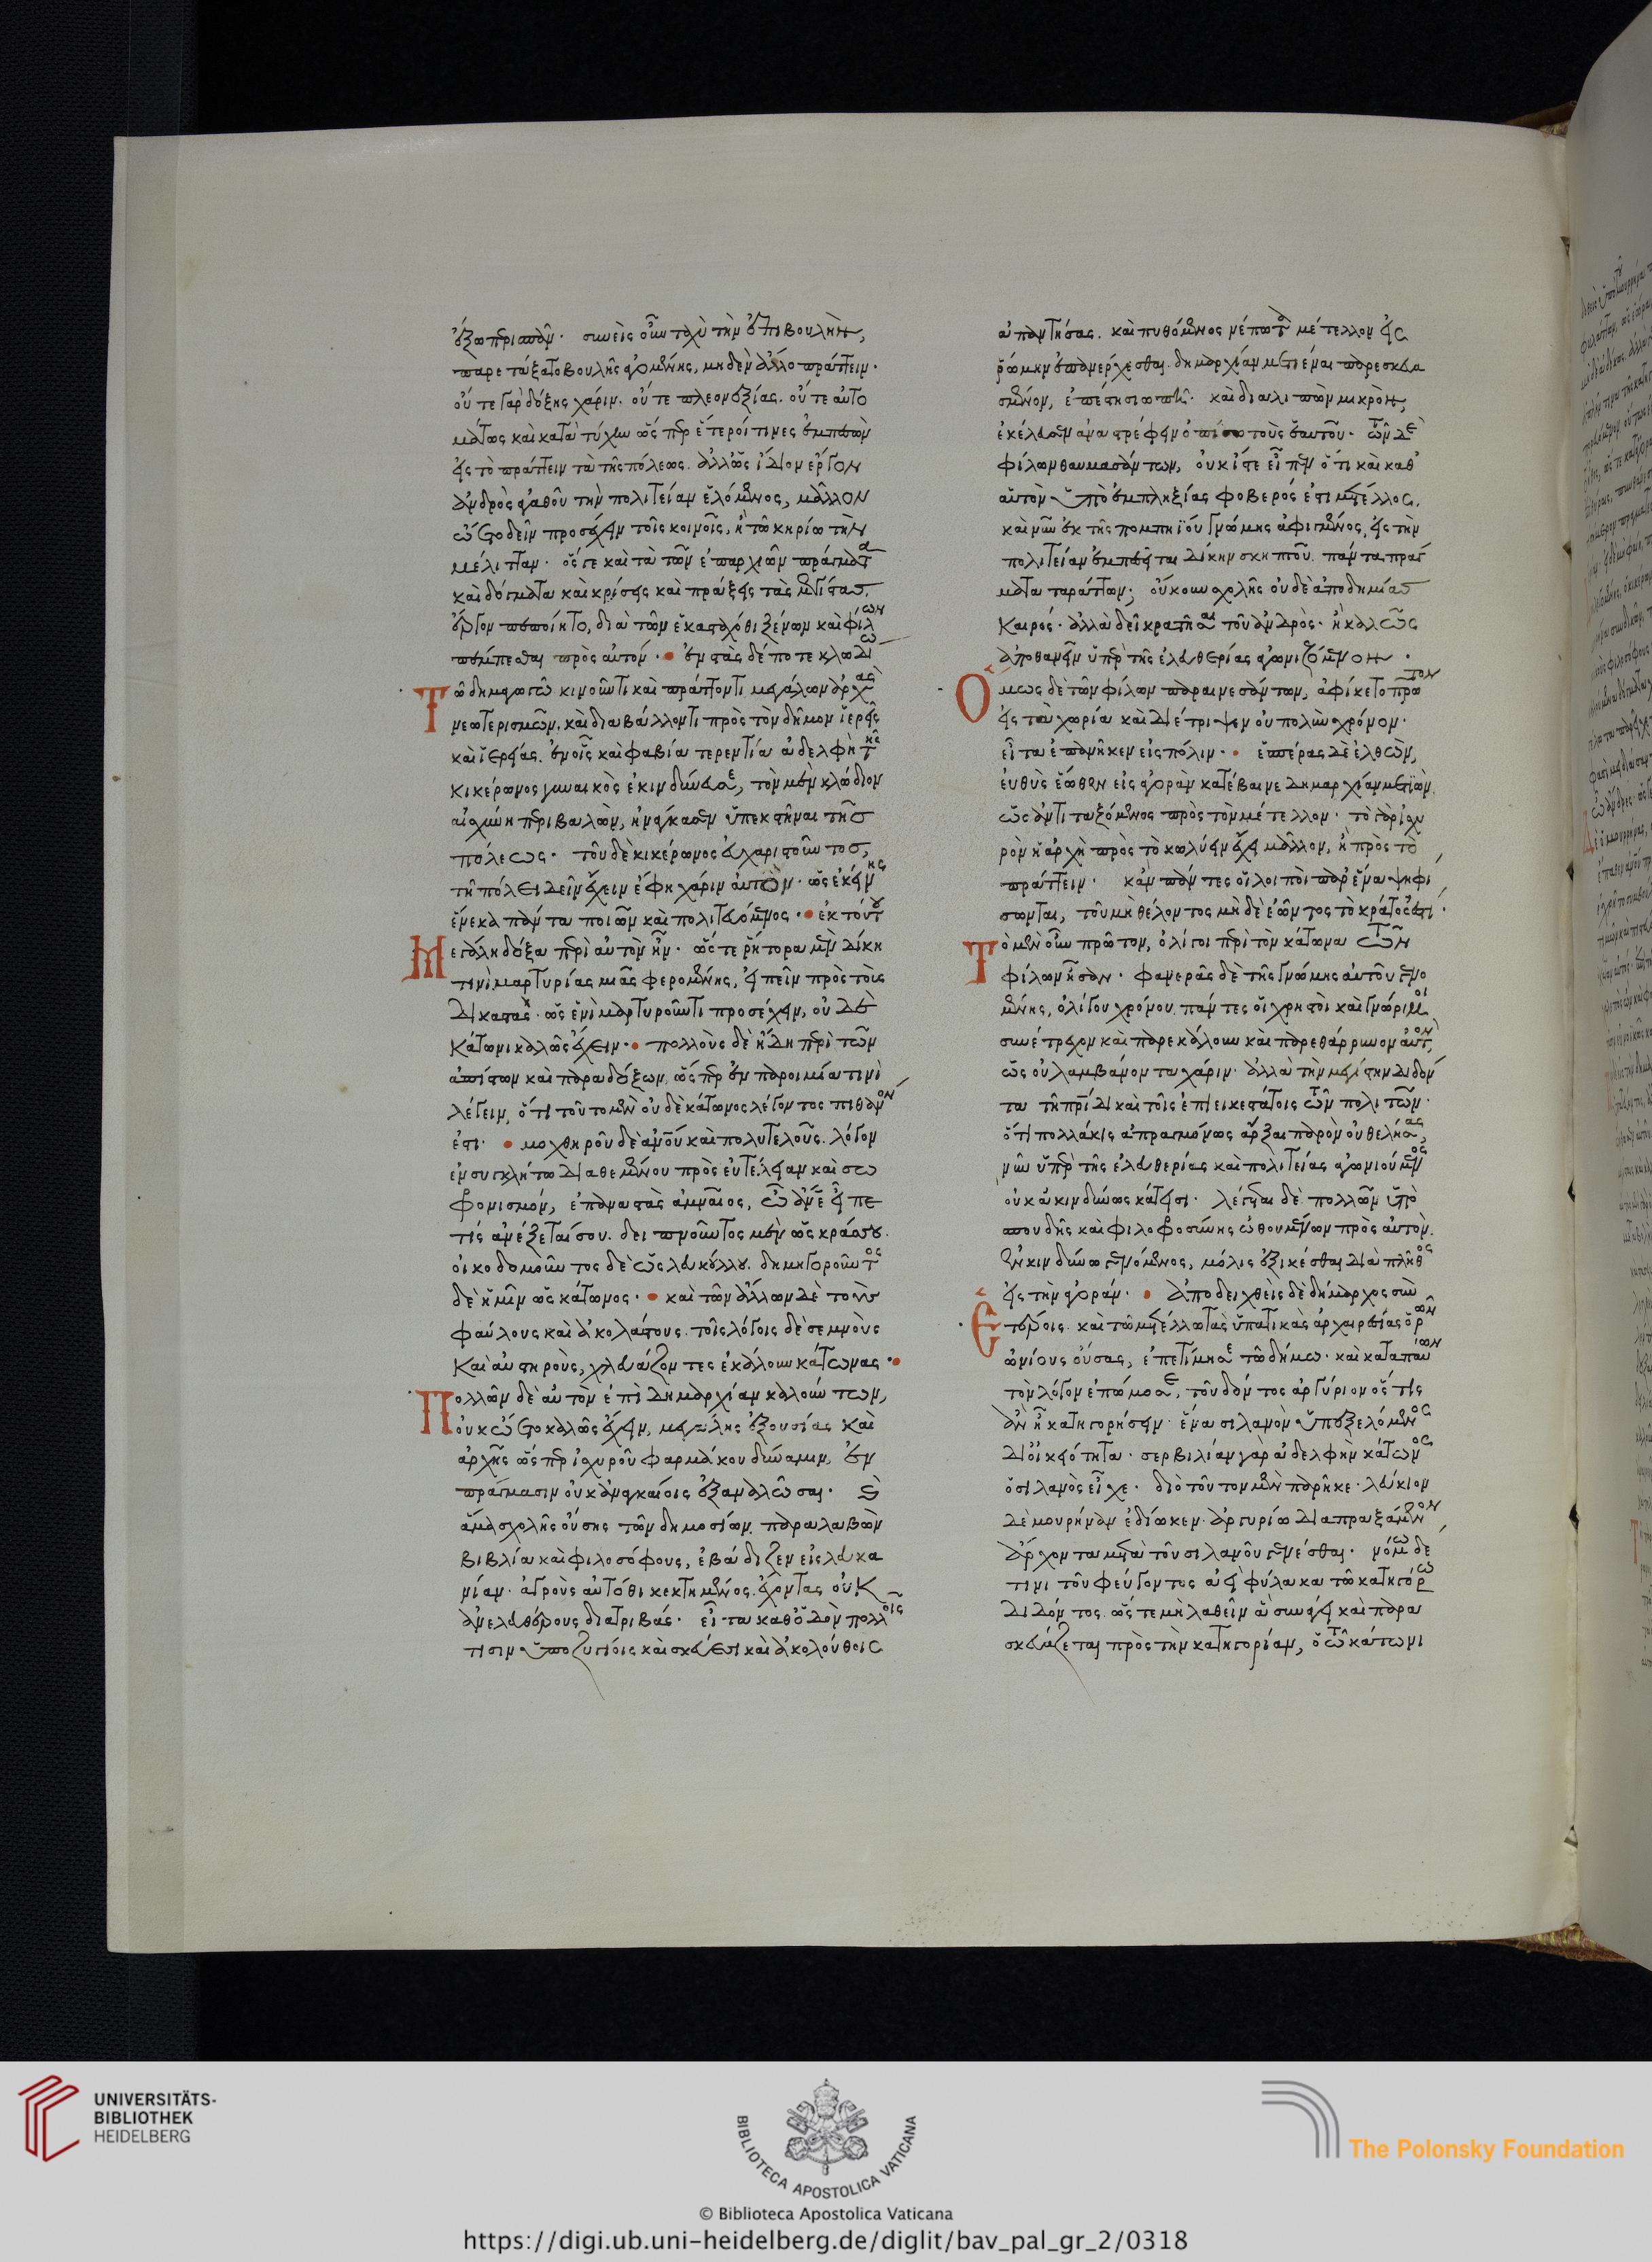 ἐξωπρίασαν. συνεὶς οὖν ταχὺ τὴν ἐπιβουλὴν,
παρετάξατο βουλῆς ἀγομένης, μηδὲν ἄλλο πράττειν.
οὔτε γὰρ δόξης χάριν. οὔτε πλεονεξίας. οὔτε αὐτο
μάτως καὶ κατὰ τύχην ὥσπερ ἕτεροί τινες ἐμπεσὼν
εἰς τὸ πράττειν τὰ τῆς πόλεως. ἀλλ' ὡς ἴδιον ἔργον
ἀνδρὸς ἀγαθοῦ τὴν πολιτείαν ἑλόμενος, μᾶλλον
ὤετο δεῖν προσέχειν τοῖς κοινοῖς, ἢ τῶ κηρίω τὴν
μέλιτταν. ὅς γε καὶ τὰ τῶν ἐπαρχιῶν πράγματα
καὶ δόγματα καὶ κρίσεις καὶ πράξεις τὰς μεγίστας,
ἔργον πεποίητο, διὰ τῶν ἑκασταχόθι ξένων καὶ φίλων
πέμπεσθαι πρὸς αὐτόν. ἐνστὰς δέ ποτε κλωδίω
Τῶ δημαγωγῶ κινοῦντι καὶ πράττοντι μεγάλων ἀρχὰς
νεωτερισμῶν. καὶ διαβάλλοντι πρὸς τὸν δῆμον ἱερεῖς
καὶ ἱερείας. ἐν οἷς καὶ φαβία τερεντία ἀδελφὴ τῆς
κικέρωνος γυναικὸς ἐκινδύνευσε, τὸν μὲν κλώδιον
αἰσχύνη περιβαλὼν, ἠνάγκασεν ὑπεκστῆναι τῆς
πόλεως. τοῦ δὲ κικέρωνος εὐχαριστοῦντος,
τῆ πόλει δεῖν ἔχειν ἔφη χάριν αὐτὸν. ὡς ἐκείνης
ἕνεκα πάντα ποιῶν καὶ πολιτευόμενος. ἐκ τούτου
Μεγάλη δόξα περὶ αὐτὸν ἦν. ὥστε ῥήτορα μὲν δίκη
τινὶ μαρτυρίας μιᾶς φερομένης, εἰπεῖν πρὸς τοὺς
δικαστὰς. ὡς ἑνὶ μαρτυροῦντι προσέχειν, οὐδὲ
κάτωνι καλῶς ἔχειν. πολλοὺς δὲ ἤδη περὶ τῶν
ἀπίστων καὶ παραδόξων, ὥσπερ ἐν παροιμία τινὶ
λέγειν, ὅτι τοῦτο μὲν οὐδὲ κάτωνος λέγοντος πιθανόν
ἐστι. μοχθηροῦ δὲ ἀνοῦ καὶ πολυτελοῦς. λόγον
ἐν συγκλήτω διαθεμένου πρὸς εὐτέλειαν καὶ σω
φρονισμόν, ἐπαναστὰς ἀμναῖος, ὦ ἄνε εἶπε
τίς ἀνέξεταί σου. δειπνοῦντος μὲν ὡς κράσσου.
οἰκοδομοῦντος δὲ ὡς λευκόλλου. δημηγοροῦντος
δὲ ἡμῖν ὡς κάτωνος. καὶ τῶν ἄλλων δὲ τοὺς
φαύλους καὶ ἀκολάστους. τοῖς λόγοις δὲ σεμνοὺς
καὶ αὐστηροὺς, χλευάζοντες ἐκάλουν κάτωνας.
Πολλῶν δὲ αὐτὸν ἐπὶ δημαρχίαν καλούντων,
οὐκ ὤετο καλῶς ἔχειν, μεγάλης ἐξουσίας καὶ
ἀρχῆς ὥσπερ ἰσχυροῦ φαρμάκου δύναμιν, ἐν
πράγμασιν οὐκ ἀναγκαίοις ἐξαναλῶσαι. καὶ
ἅμα σχολῆς οὔσης τῶν δημοσίων, παραλαβὼν
βιβλία καὶ φιλοσόφους, ἐβάδιζεν εἰς λευκα
νίαν. ἀγροὺς αὐτόθι κεκτημένος, ἔχοντας οὐκ
ἀνελευθέρους διατριβάς. εἶτα καθ' ὁδὸν πολλοῖς
τισιν ὑποζυγίοις καὶ σκεύεσι καὶ ἀκολούθοις
ἀπαντήσας. καὶ πυθόμενος νέπωτα μέτελλον εἰς
ῥώμην ἐπανέρχεσθαι. δημαρχίαν μετιέναι παρεσκευα
σμένον, ἐπέστη σιωπῆ. καὶ διαλιπὼν μικρὸν,
ἐκέλευσεν ἀναστρέφειν ὀπίσω τοὺς ἑαυτοῦ. τῶν δὲ
φίλων θαυμασάντων, οὐκ ἴστε εἶπεν ὅτι καὶ καθ'
αὑτὸν ὑπὸ ἐμπληξίας φοβερός ἐστι μέτελλος.
καὶ νῦν ἐκ τῆς πομπηΐου γνώμης ἀφιγμένος, εἰς τὴν
πολιτείαν ἐμπεσεῖται δίκην σκηπτοῦ. πάντα πράγ
ματα ταράττων; οὔκουν σχολῆς οὐδὲ ἀποδημίας
καιρός. ἀλλὰ δεῖ κρατῆσαι τοῦ ἀνδρὸς. ἢ καλῶς
ἀποθανεῖν ὑπὲρ τῆς ἐλευθερίας ἀγωνιζόμενον.
Ὅμως δὲ τῶν φίλων παραινεσάντων, ἀφίκετο πρῶτον
εἰς τὰ χωρία καὶ διέτριψεν οὐ πολὺν χρόνον.
εἶτα ἐπανῆκεν εἰς πόλιν. ἑσπέρας δὲ ἐλθὼν,
εὐθὺς ἕωθεν εἰς ἀγορὰν κατέβαινε δημαρχίαν μετιὼν,
ὡς ἀντιταξόμενος πρὸς τὸν μέτελλον. τὸ γὰρ ἰσχυ
ρὸν ἡ ἀρχὴ πρὸς τὸ κωλύειν ἔχει μᾶλλον, ἢ πρὸς τὸ
πράττειν. κἂν πάντες οἱ λοιποὶ παρ' ἕνα ψηφί
σωνται, τοῦ μὴ θέλοντος μηδὲ ἐῶντος τὸ κράτος ἐστί.
Τὸ μὲν οὖν πρῶτον, ὀλίγοι περὶ τὸν κάτωνα τῶν
φίλων ἦσαν. φανερᾶς δὲ τῆς γνώμης αὐτοῦ γενο
μένης, ὀλίγου χρόνου πάντες οἱ χρηστοὶ καὶ γνώριμοι
συνέτρεχον καὶ παρεκάλουν καὶ παρεθάρρυνον αὐτόν,
ὡς οὐ λαμβάνοντα χάριν. ἀλλὰ τὴν μεγίστην διδόν
τα τῆ πατρίδι καὶ τοῖς ἐπιεικεστάτοις τῶν πολιτῶν.
ὅτι πολλάκις ἀπραγμόνως ἄρξαι παρὸν οὐ θελήσας,
νῦν ὑπὲρ τῆς ἐλευθερίας καὶ πολιτείας ἀγωνιούμενος
οὐκ ἀκινδύνως κάτεισι. λέγεται δὲ πολλῶν ὑπὸ
σπουδῆς καὶ φιλοφροσύνης ὠθουμένων πρὸς αὐτὸν.
ἐν κινδύνω γενόμενος, μόλις ἐξικέσθαι διὰ πλῆθος
εἰς τὴν ἀγοράν. ἀποδειχθεὶς δὲ δήμαρχος σὺν
Ἑτέροις. καὶ τῶ μετέλλω τὰς ὑπατικὰς ἀρχαιρεσίας ὁρῶν
ὠνίους οὔσας, ἐπετίμησε τῶ δήμω. καὶ καταπαύων
τὸν λόγον ἐπώμοσε, τοῦ δόντος ἀργύριον ὅστις
ἂν ἦ κατηγορήσειν. ἕνα σιλανὸν ὑπεξελόμενος
δι' οἰκειότητα. σερβιλίαν γὰρ ἀδελφὴν κάτωνος
ὁ σιλανὸς εἶχε. διὸ τοῦτον μὲν παρῆκε. λεύκιον
δὲ μουρήναν ἐδίωκεν. ἀργυρίω διαπραξάμενον
ἄρχοντα μετὰ τοῦ σιλανοῦ γενέσθαι. νόμω δέ
τινι τοῦ φεύγοντος ἀεὶ φύλακα τῶ κατηγόρω
διδόντος. ὥστε μὴ λαθεῖν ἃ συνάγει καὶ παρα
σκευάζεται πρὸς τὴν κατηγορίαν, ὁ τῶ κάτωνι
UNIVERSITÄTS-
BIBLIOTHEK
HEIDELBERG
BIBLIOTECA APOSTOLICA VATICANA
The Polonsky Foundation
© Biblioteca Apostolica Vaticana
https://digi.ub.uni-heidelberg.de/diglit/bav_pal_gr_2/0318